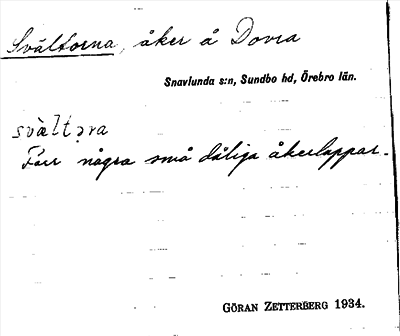 Svältorna, åker å Dovra
Snavlunda s:n, Sundbo hd, Örebro län.
svält̩ǝra
Förr några små dåliga åkerlappar.
GÖRAN ZETTERBERG 1934.